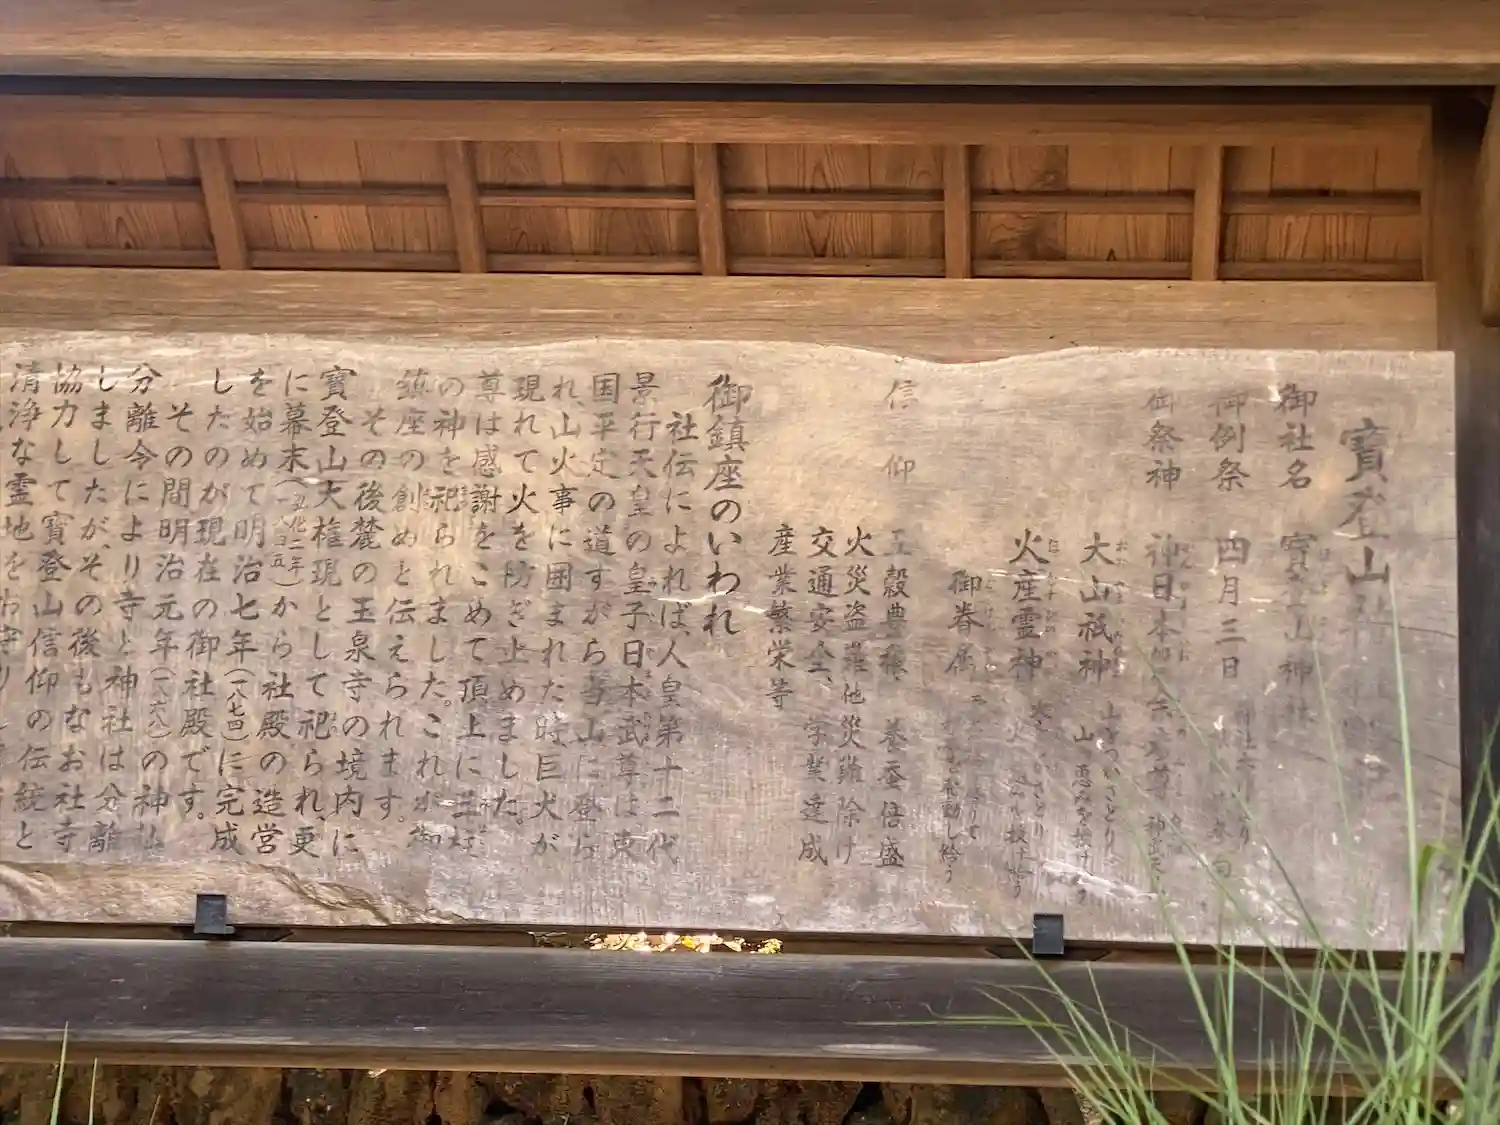 寶登山神社
御社名 寶登山神社
御例祭 四月三日
御祭神 神日本磐余彦尊
大山祇神
火産霊神
御眷属
信仰 五穀豊穣 養蚕倍盛
火災盗難他災難除け
交通安全、学業達成
産業繁栄等
御鎮座のいわれ
社伝によれば、人皇第十二代
景行天皇の皇子日本武尊は東
国平定の道すがら当山に登ら
れ、山火事に囲まれた時、巨犬が
現れて火を防ぎ止めました。
尊は感謝をこめて頂上に三柱
の神を祀られました。これが御
鎮座の創めと伝えられます。
その後麓の玉泉寺の境内に
寶登山大権現として祀られ、更
に幕末(弘化二年 一八四五)から社殿の造営
を始めて明治七年(一八七四)に完成
したのが現在の御社殿です。
その間明治元年(一八六八)の神仏
分離令により寺と神社は分離
しましたが、その後もなお社寺
協力して寶登山信仰の伝統と
清浄な霊地を